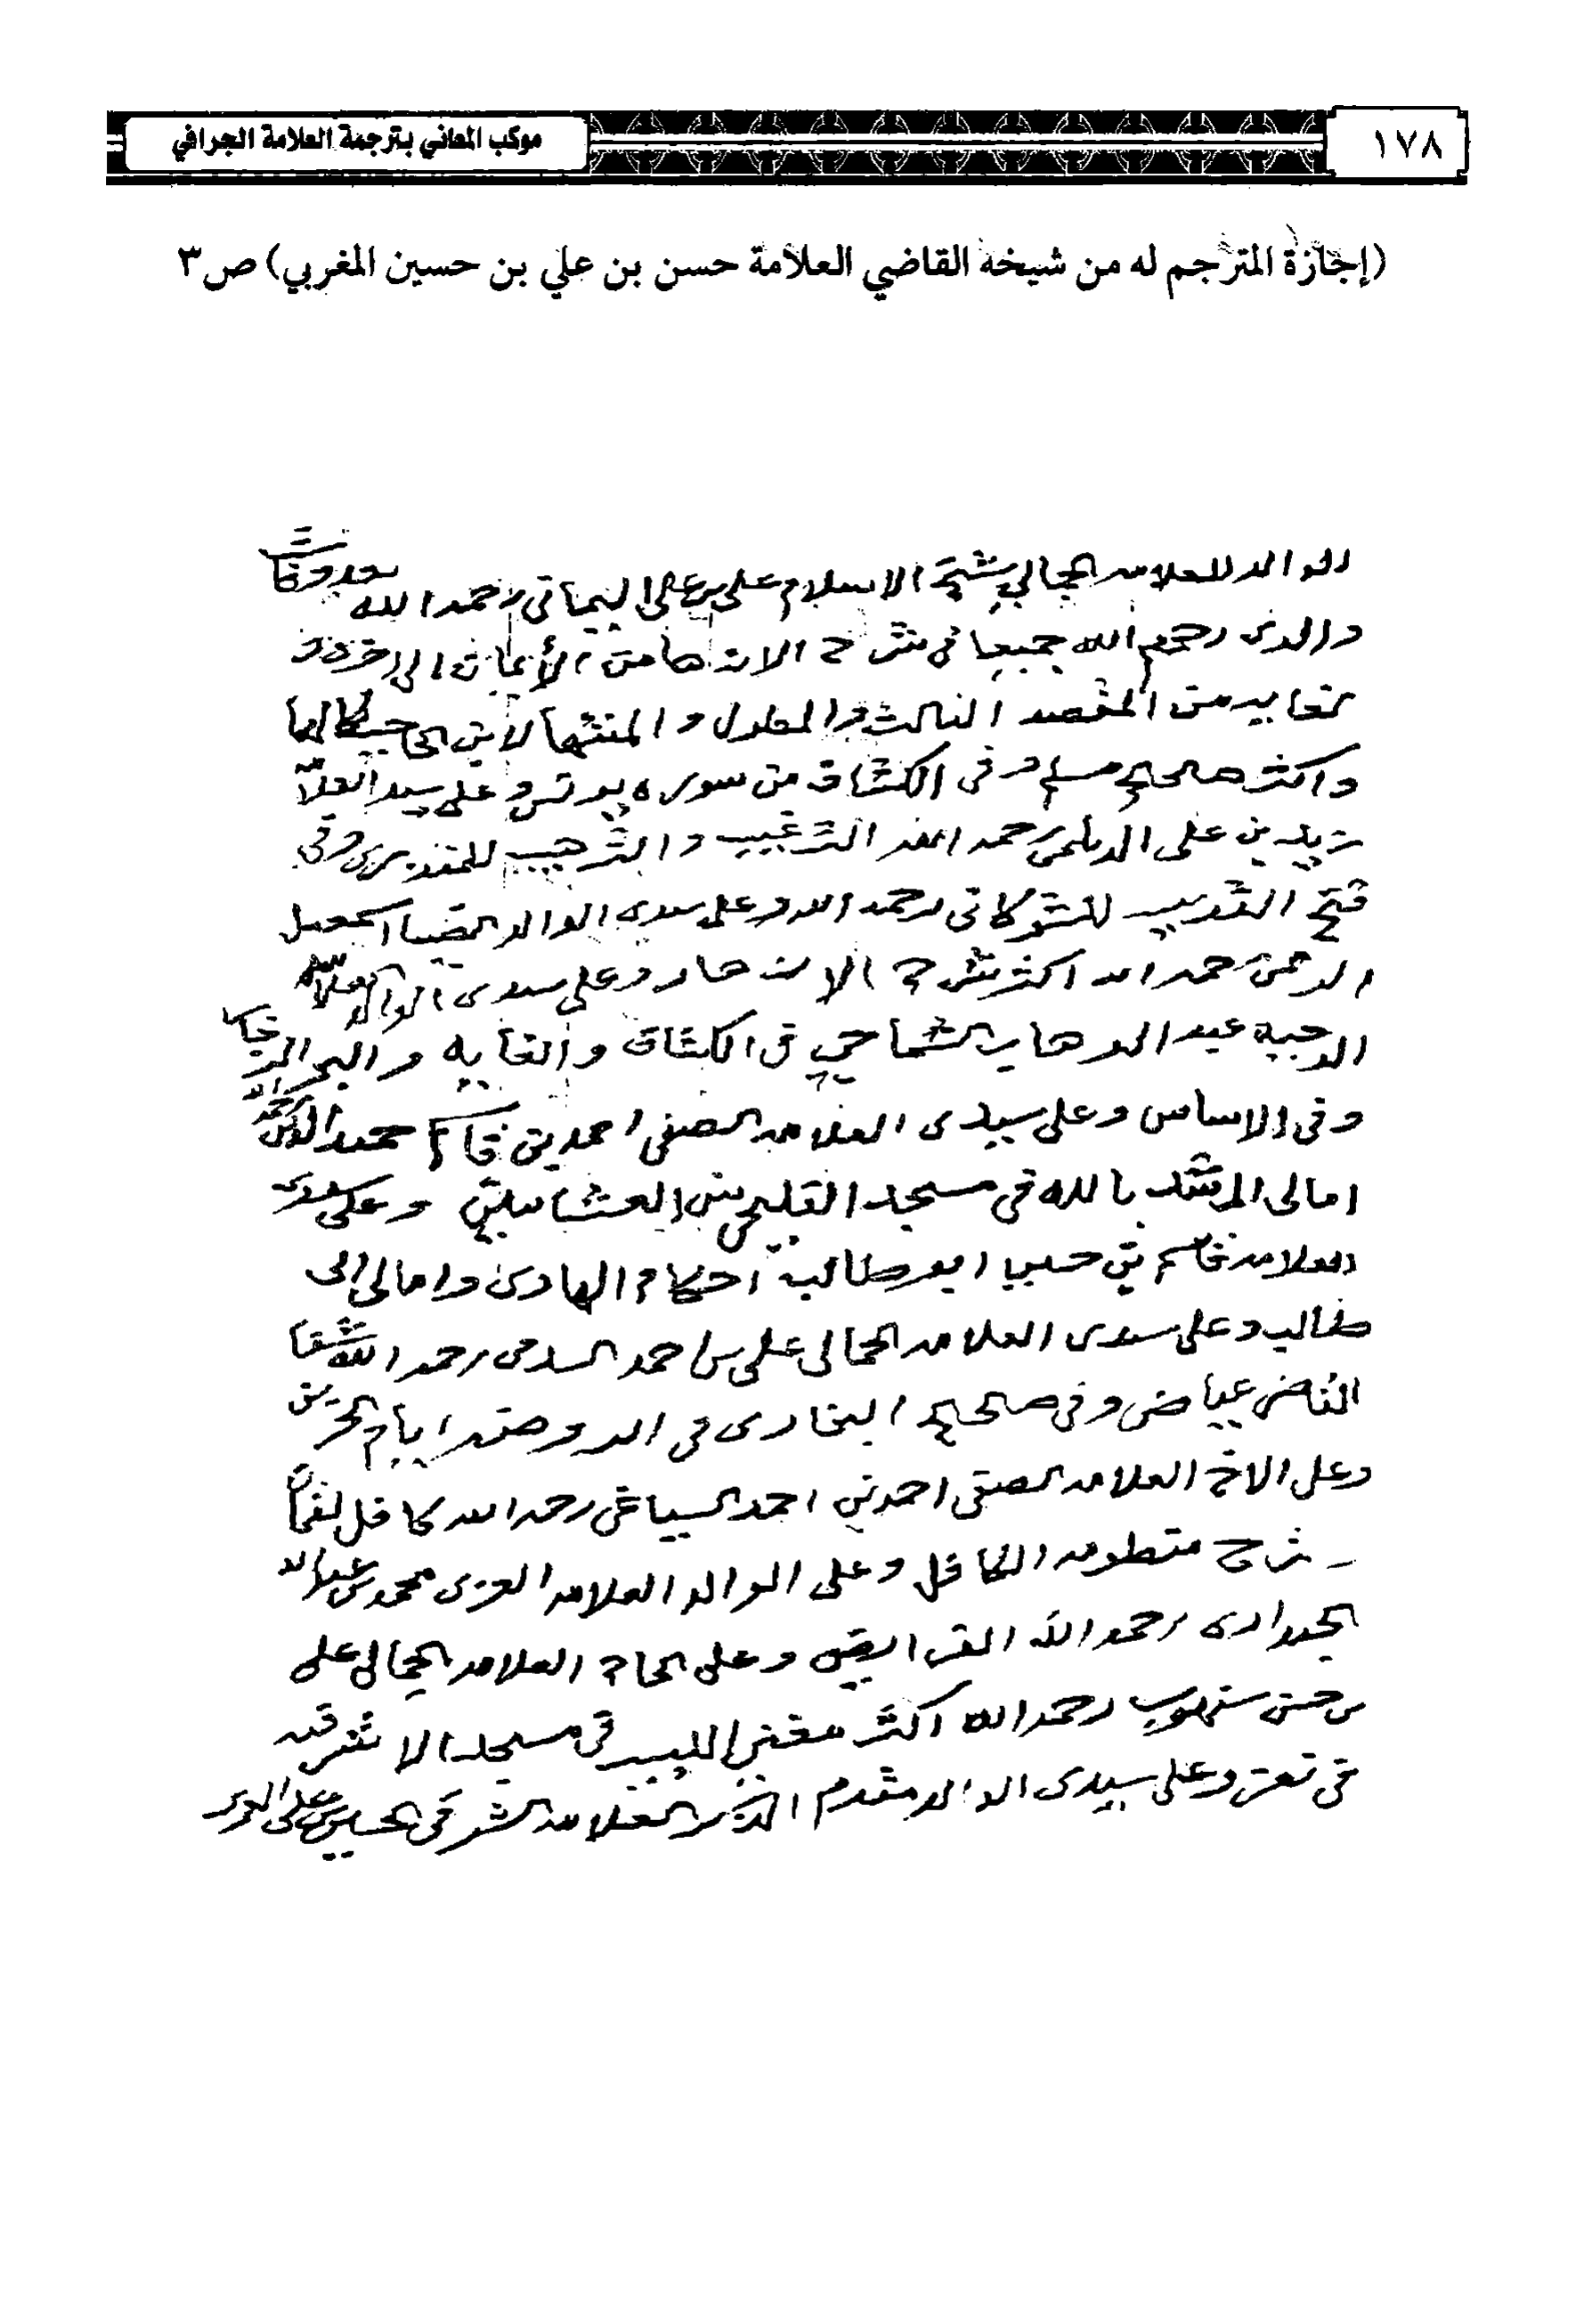 ١٧٨
موكب المعاني بترجمة العلامة الجرافي
(إجازة المترجم له من شيخه القاضي العلامة حسن بن علي بن حسين المغربي) ص٣
الوالد العلامه الجمالي شيخ الاسلام علي بن علي اليماني رحمه الله
والدى رحمهم الله جميعا في شرح الازهار من الأيمان الى اخره و
بغايه من المقصد الثالث والمطول و المنتهى لابن الحاجب
واكثر صحيح مسلم وفي الكشاف من سوره يونس وعلى سيد العلا
زيد بن علي الديلمي رحمه الله الترغيب والترهيب للمنذري وفي
فتح القدير للشوكاني رحمه الله وعلى سيدي الوالد الضيا اسمعيل
الريمي رحمه الله اكثر شرح الازهار وعلى سيدى الوالد العلامه
الوجيه عبد الوهاب الشماحي في الكشاف والغايه والبحر الزخار
وفي الاساس وعلى سيدى العلامه الصفي احمد بن قاسم حميد الدين رحمه الله
امالى المرشد بالله في مسجد الفليحي بين العشائين وعلى سيدى
العلامه قاسم بن حسين ابو طالب احكام الهادى وامالى ابى
طالب وعلى سيدى العلامه الجمالى علي بن احمد السدمى رحمه الله شفا
القاضي عياض وفي صحيح البخارى في الروضه ايام الخريف
وعلى الاخ العلامه الصفي احمد بن احمد السياغي رحمه الله كافل لقمان
شرح منظومه الكافل وعلى الوالد العلامه العزى محمد بن عبد الله
الجندارى رحمه الله الفرايض وعلى الحاج العلامه الجمالى على
بن حسن سنهوب رحمه الله اكثر مغني اللبيب في مسجد الاشرفيه
في تعز وعلى سيدى الوالد مقدم الذكر العلامه الشرفي الحسين بن علي العمرى